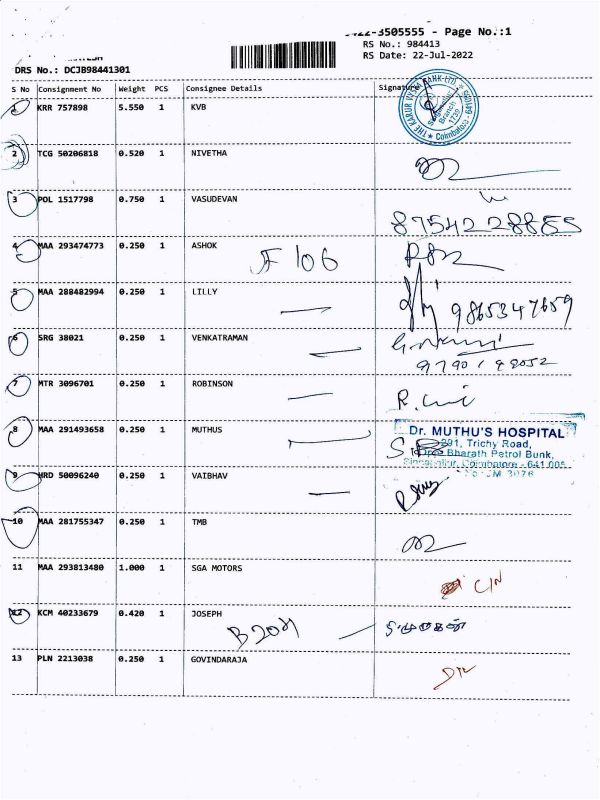 422-3505555 - Page No.:1
RS No.: 984413
RS Date: 22-Jul-2022
DRS No.: DCJB98441301
S No Consignment No Weight PCS Consignee Details Signature
KRR 757898 5.550 1 KVB
THE KARUR VYSYA BANK LTD. Singanallur Branch 1739 Coimbatore - 641005
2 TCG 50206818 0.520 1 NIVETHA
3 POL 1517798 0.750 1 VASUDEVAN
8754228885
4 MAA 293474773 0.250 1 ASHOK
F 106
5 MAA 288482994 0.250 1 LILLY
9865347659
6 SRG 38021 0.250 1 VENKATRAMAN
7 MTR 3096701 0.250 1 ROBINSON
8 MAA 291493658 0.250 1 MUTHUS
Dr. MUTHU'S HOSPITAL
291, Trichy Road,
Bharath Petrol Bunk,
Singanallur, Coimbatore - 641 005
9 MRD 50096240 0.250 1 VAIBHAV
10 MAA 281755347 0.250 1 TMB
11 MAA 293813480 1.000 1 SGA MOTORS
C/N
12 KCM 40233679 0.420 1 JOSEPH
13 PLN 2213038 0.250 1 GOVINDARAJA